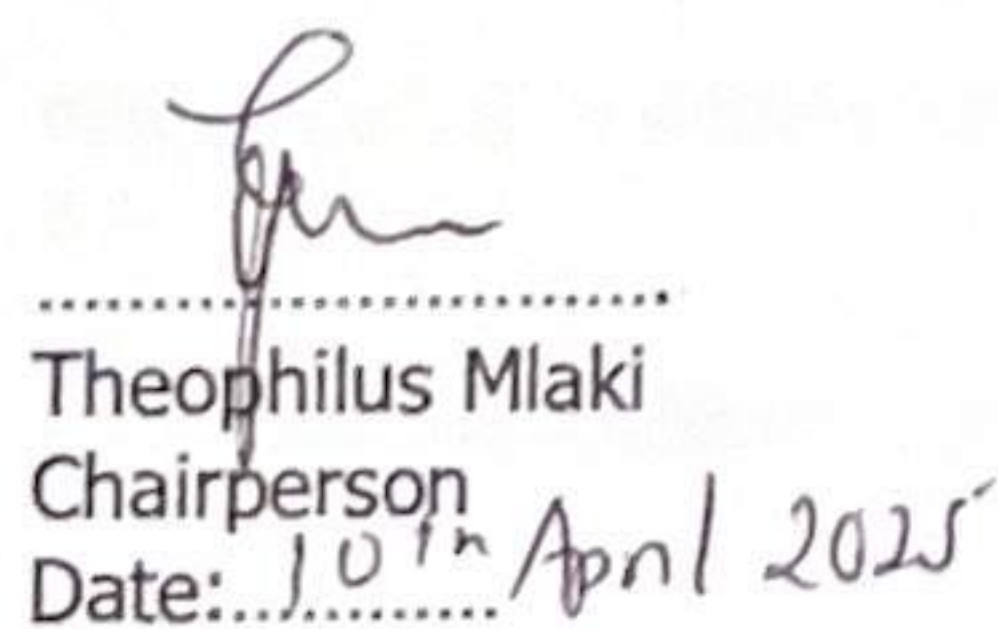 Theophilus Mlaki
Chairperson
Date: 10th April 2025